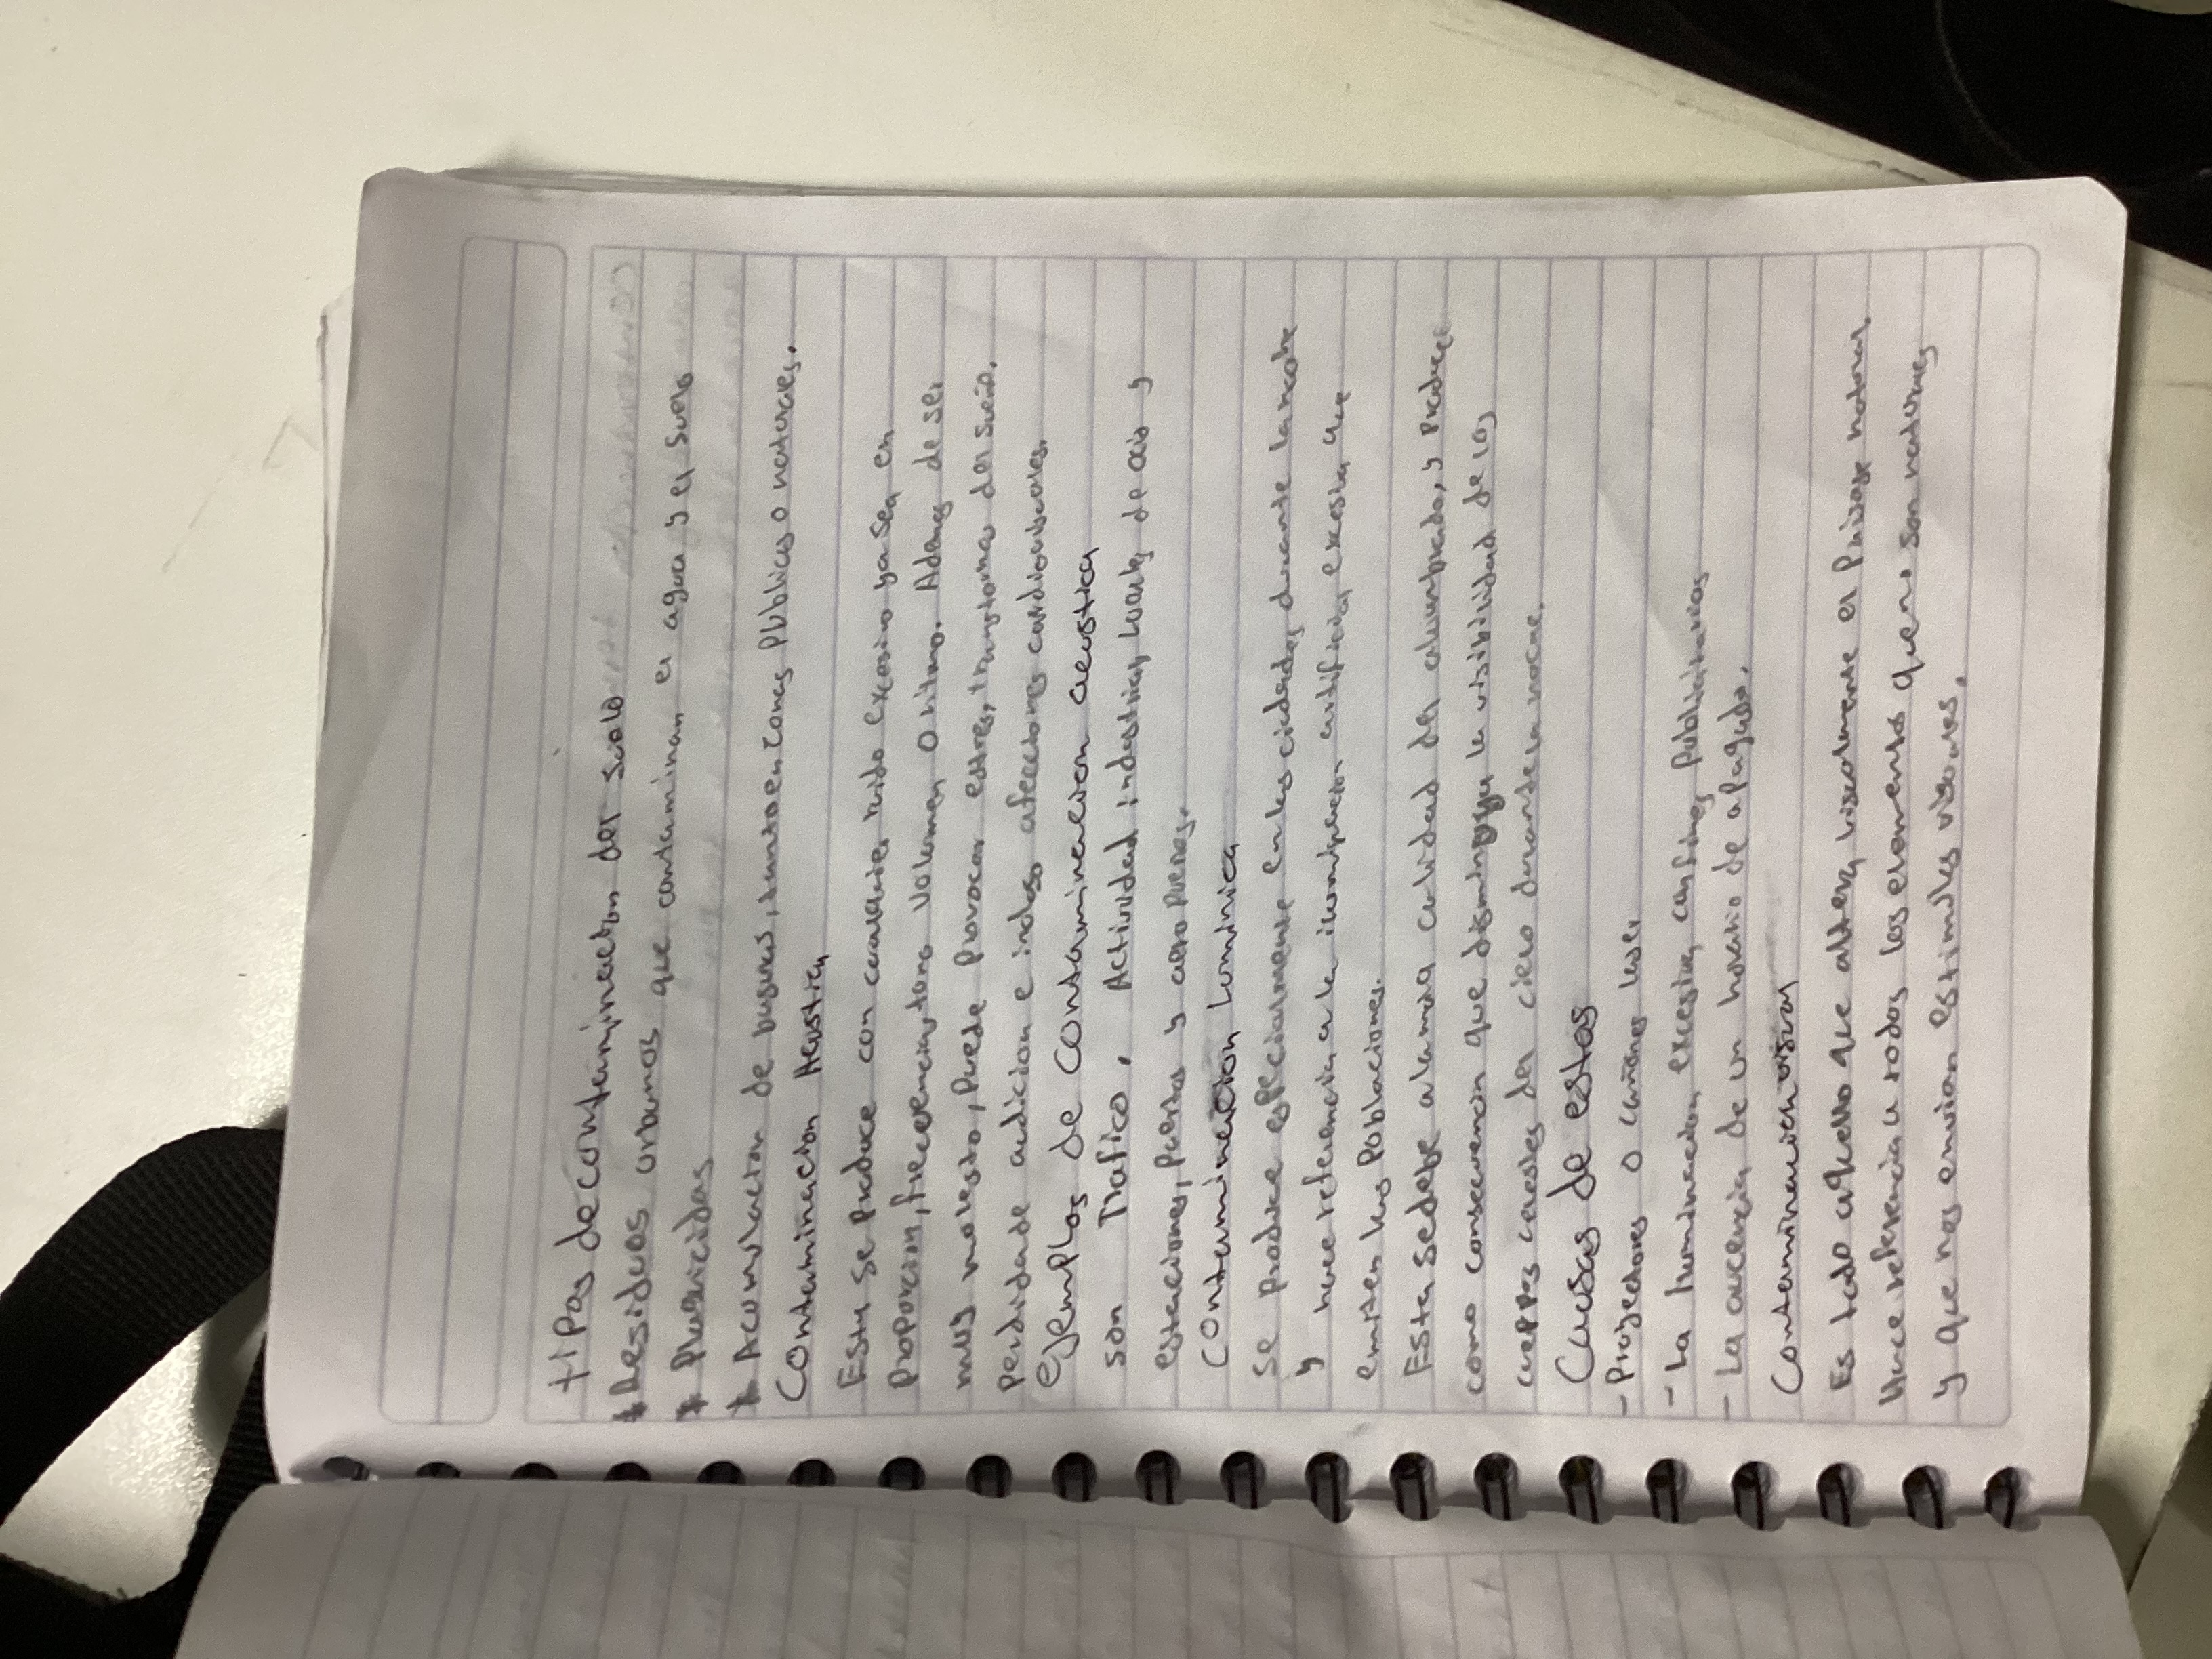 tipos de contaminacion del suelo
* Residuos urbanos que contaminan el agua y el suelo
* Plaguicidas
* Acumulacion de basuras, tanto en zonas Publicas o naturales.
Contaminacion Acustica
Esta se produce con cualquier ruido excesivo ya sea en
proporcion, frecuencia, tono volumen, o ritmo. Ademas de ser
muy molesto, puede provocar estres, transtornos del sueño,
perdida de audicion e incluso afecciones cardiovasculares.
ejemplos de contaminacion acustica
son Trafico, Actividad industrial, locales de ocio y
estaciones, puertos y aeropuertos.
Contaminacion Luminica
se produce especialmente en las ciudades durante la noche
y hace referencia a la iluminacion artificial excesiva que
emiten las poblaciones.
Esta se debe a la mala calidad del alumbrado, y produce
como consecuencia que disminuya la visibilidad de los
cuerpos celestes del cielo durante la noche.
Causas de estas
- Proyectores o cañones laser
- La iluminacion excesiva, carteles publicitarios
- La ausencia de un horario de apagado.
Contaminacion visual
Es todo aquello que altera visualmente el paisaje natural.
Hace referencia a todos los elementos que no son naturales
y que nos envian estimulos visuales.